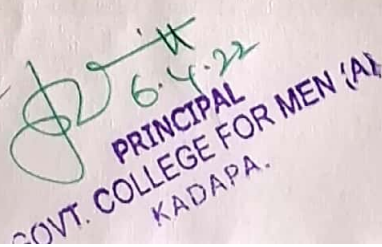 6.4.22
PRINCIPAL
GOVT. COLLEGE FOR MEN (A)
KADAPA.